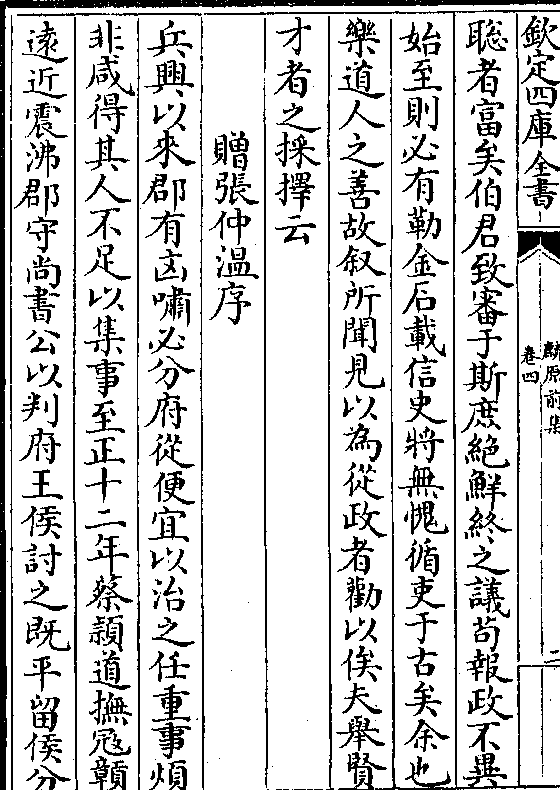 欽定四庫全書
麟原前集
卷四
二
聡者富矣伯君致審于斯庶絶鮮終之議茍報政不異
始至則必有勒金石載信史將無愧循吏于古矣余也
樂道人之善故叙所聞見以為從政者勸以俟夫舉賢
才者之採擇云
贈張仲温序
兵興以來郡有凶嘯必分府從便宜以治之任重事煩
非咸得其人不足以集事至正十二年蔡潁道撫冦竷
逺近震沸郡守尚書公以判府王侯討之既平留侯分